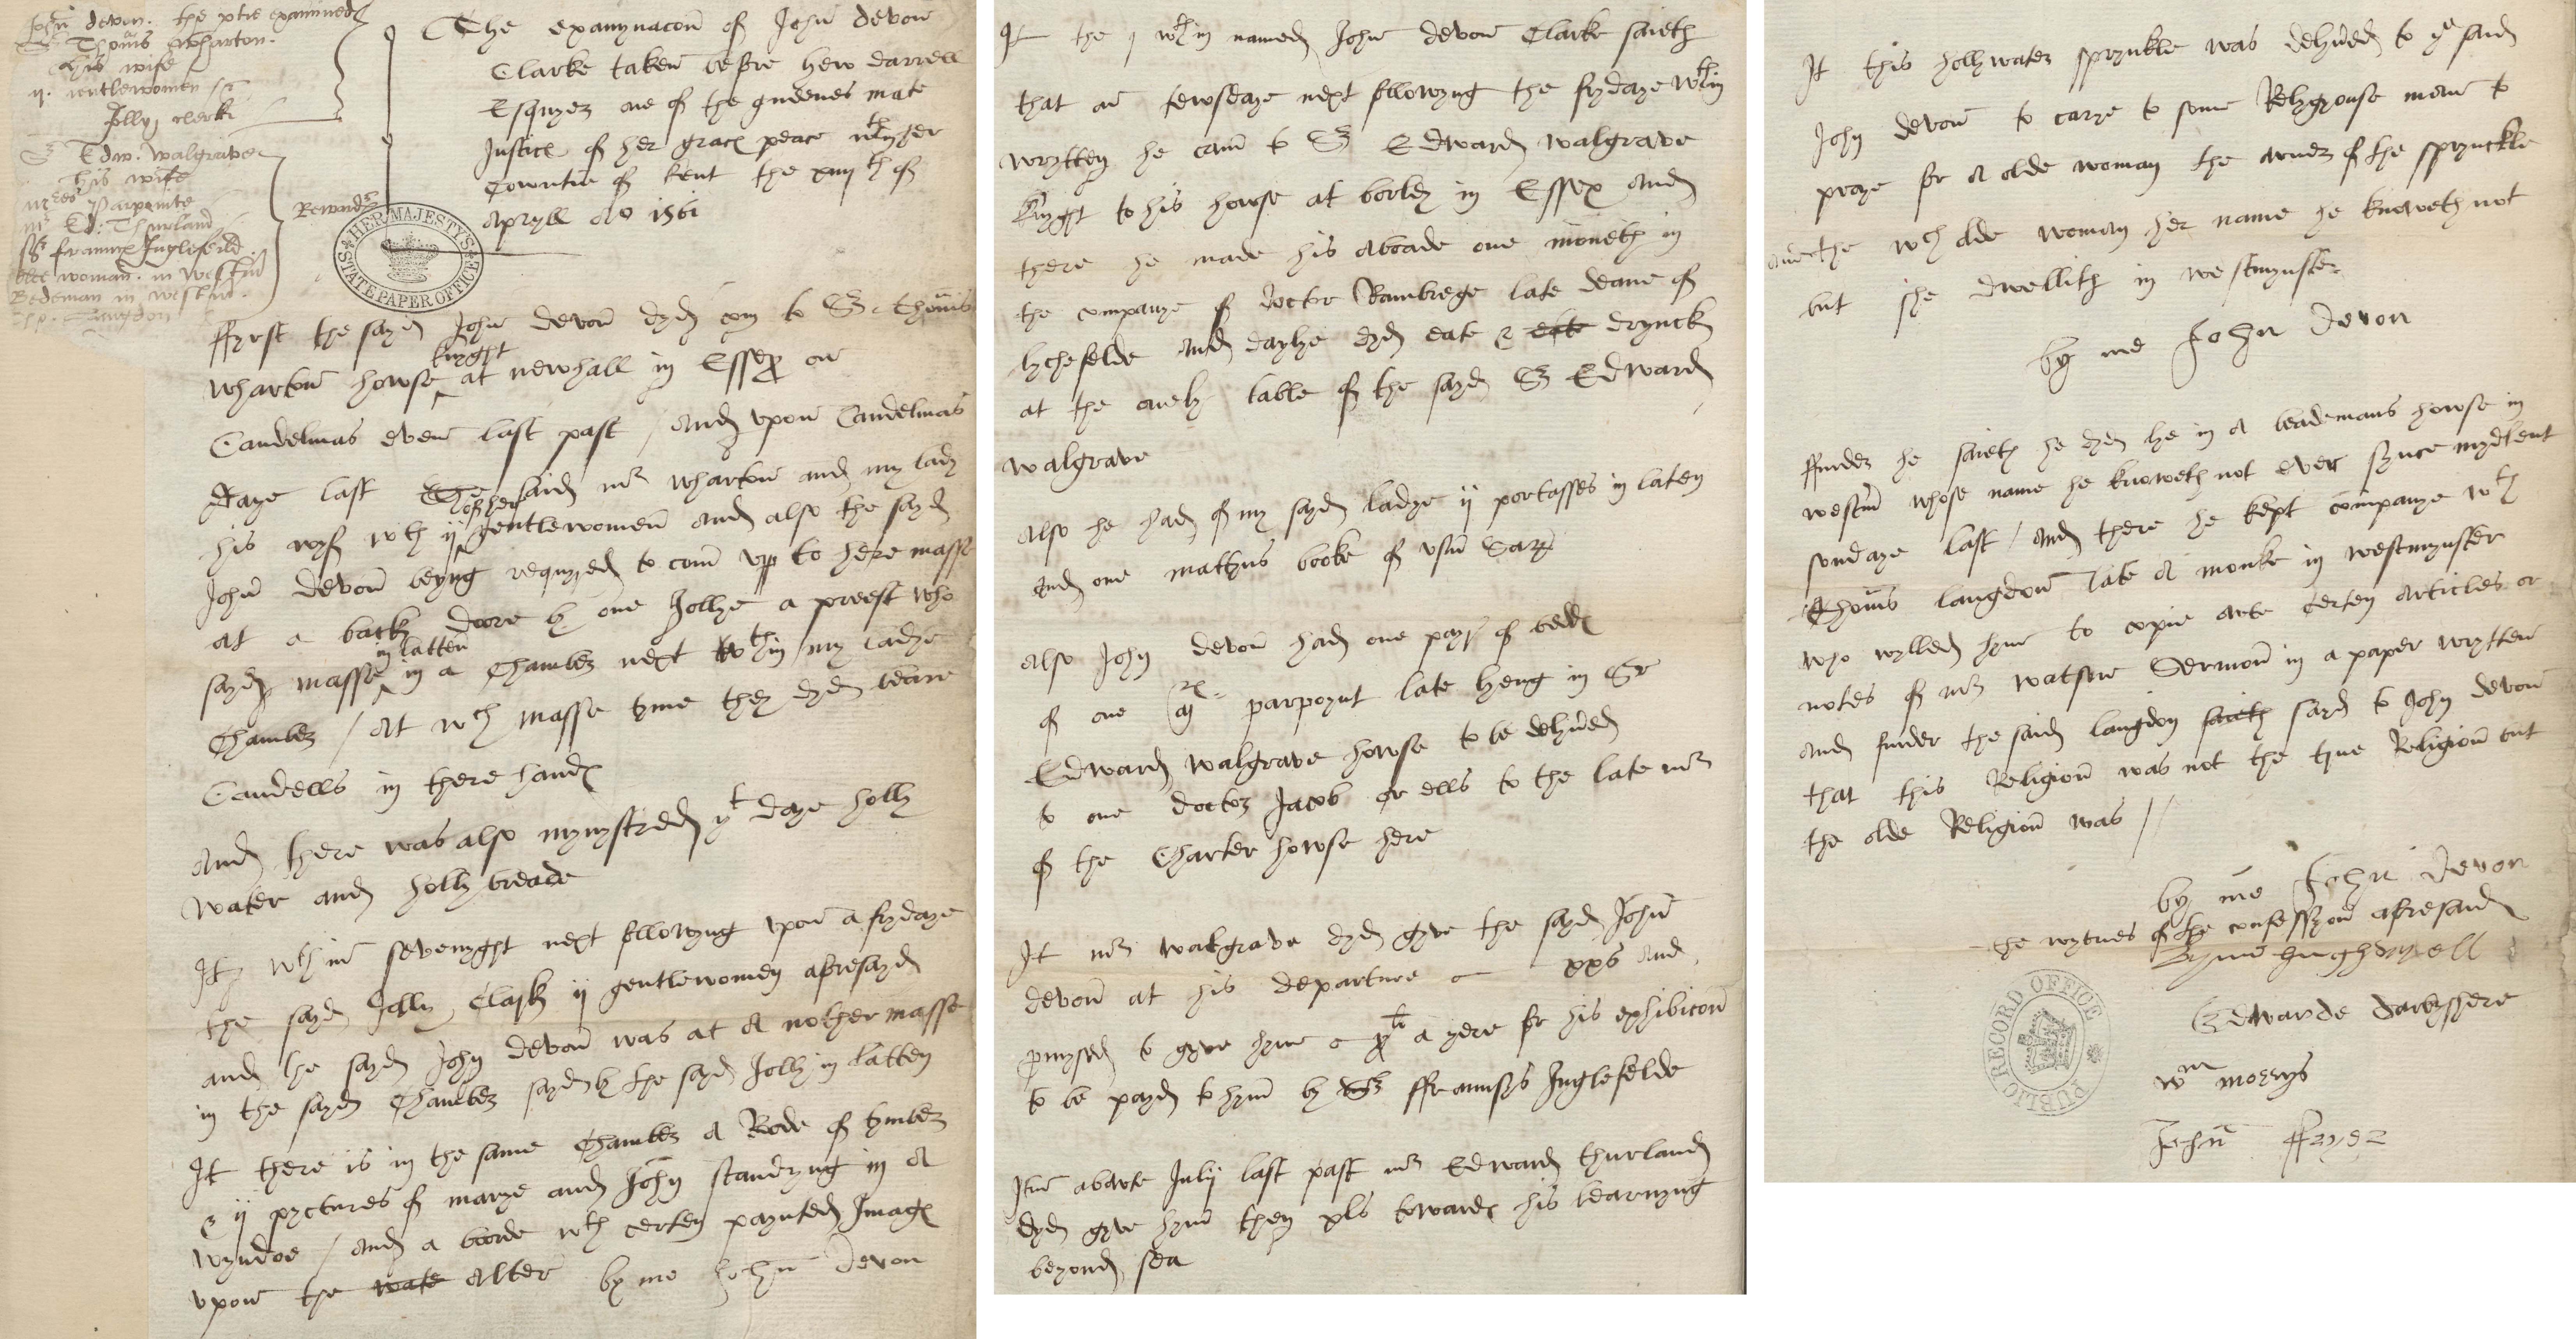 John devon. the ptie examined
Sr Thoms wharton.
his wife
ij. gentlewomen
Jolly clerk
Sr Edw. Walgrave
his wife
mres Parpointe
mr Ed: Thurland
Sr frauncs Inglefeild
olde woman. in westm
Bedeman in westm.
Tho. Langdon
Rewards
The examynacon of John devon
Clarke taken before hew darrell
Esquyer one of the quenes mate
Justice of her grace peace wthin her
Cowntie of kent the xiiijth of
Apryll ao 1561
HER MAJESTY'S STATE PAPER OFFICE
ffyrst the sayd John devon dyd com to Sr Thoms
wharton knyght howse at newhall in Essex on
Candelmas even last past / And upon Candelmas
daye last the said mr wharton and my lady
his wyf wth ij other gentlewomen and also the sayd
John devon beyng requyred to com upp to here masse
at a back doore by one Jollye a preest who
sayd masse in latten in a Chamber next wthin my ladye
Chamber / At wch masse tyme they dyd beare
Candells in there hands
And there was also mynystred yt daye holly
water and holly breade
It wthin sevenyght next followyng upon a frydaye
the sayd Jolly Clark ij gentlewomen aforesayd
and he sayd John devon was at A nother masse
in the sayd Chamber sayd by the sayd Jolly in latten
It there is in the same Chamber A Rode of tymber
& ij pyctures of marye and John standyng in A
wyndoe / And a boorde wth certen paynted Images
upon the wate Alter by me John Devon
It the wthin named John devon Clarke saieth
that on tewsdaye next followyng the frydaye wthin
wrytten he cam to Sr Edward walgrave
knyght to his howse at borley in Essex And
there he made his Aboade one moneth in
the companye of doctor Rambrege late deane of
lychefelde And daylye dyd eate & eate drynck
at the onely table of the sayd Sr Edward
walgrave
Also he had of my sayd ladye ij portasses in laten
And one mathyns booke of usum Sarum
Also John devon had one payr of beds
of one mres parpoynt late lyeng in Sr
Edward walgrave howse to be delyvred
to one doctor Jacob or ells to the late mr
of the Charter howse here
It mr walgrave dyd gyve the sayd John
devon at his departure xxs And
promysed to gyve hym xli a yere for his exhibicon
to be payd to hym by Sr ffraunsys Inglefelde
Itm abowte July last past mr Edward thurland
dyd gyve hym then xls towards his learnyng
beyond sea
It this hollywater sprynkle was delyvred to ye said
John devon to carye to some Relygyouse men to
praye for A olde woman the owner of the sprynckle
the wch olde woman her name he knoweth not
but she dwellith in westmynster
by me John Devon
ffurder he saieth he dyd lye in A beademans howse in
westm whose name he knoweth not ever synce mydlent
sondaye last / And there he kept companye wth
Thoms langdon late A monke in westmynster
who wylled hym to copie owte certen Articles or
notes of mr watson Sermon in a paper wrytten
And furder the said langdon saieth sayd to John devon
that this Religion was not the true Religion but
the olde Religion was //
by me John Devon
the wytnes of the confessyon aforesaid
hugh daryell
Edwarde darbyshere
wm morrys
John ffryer
PUBLIC RECORD OFFICE